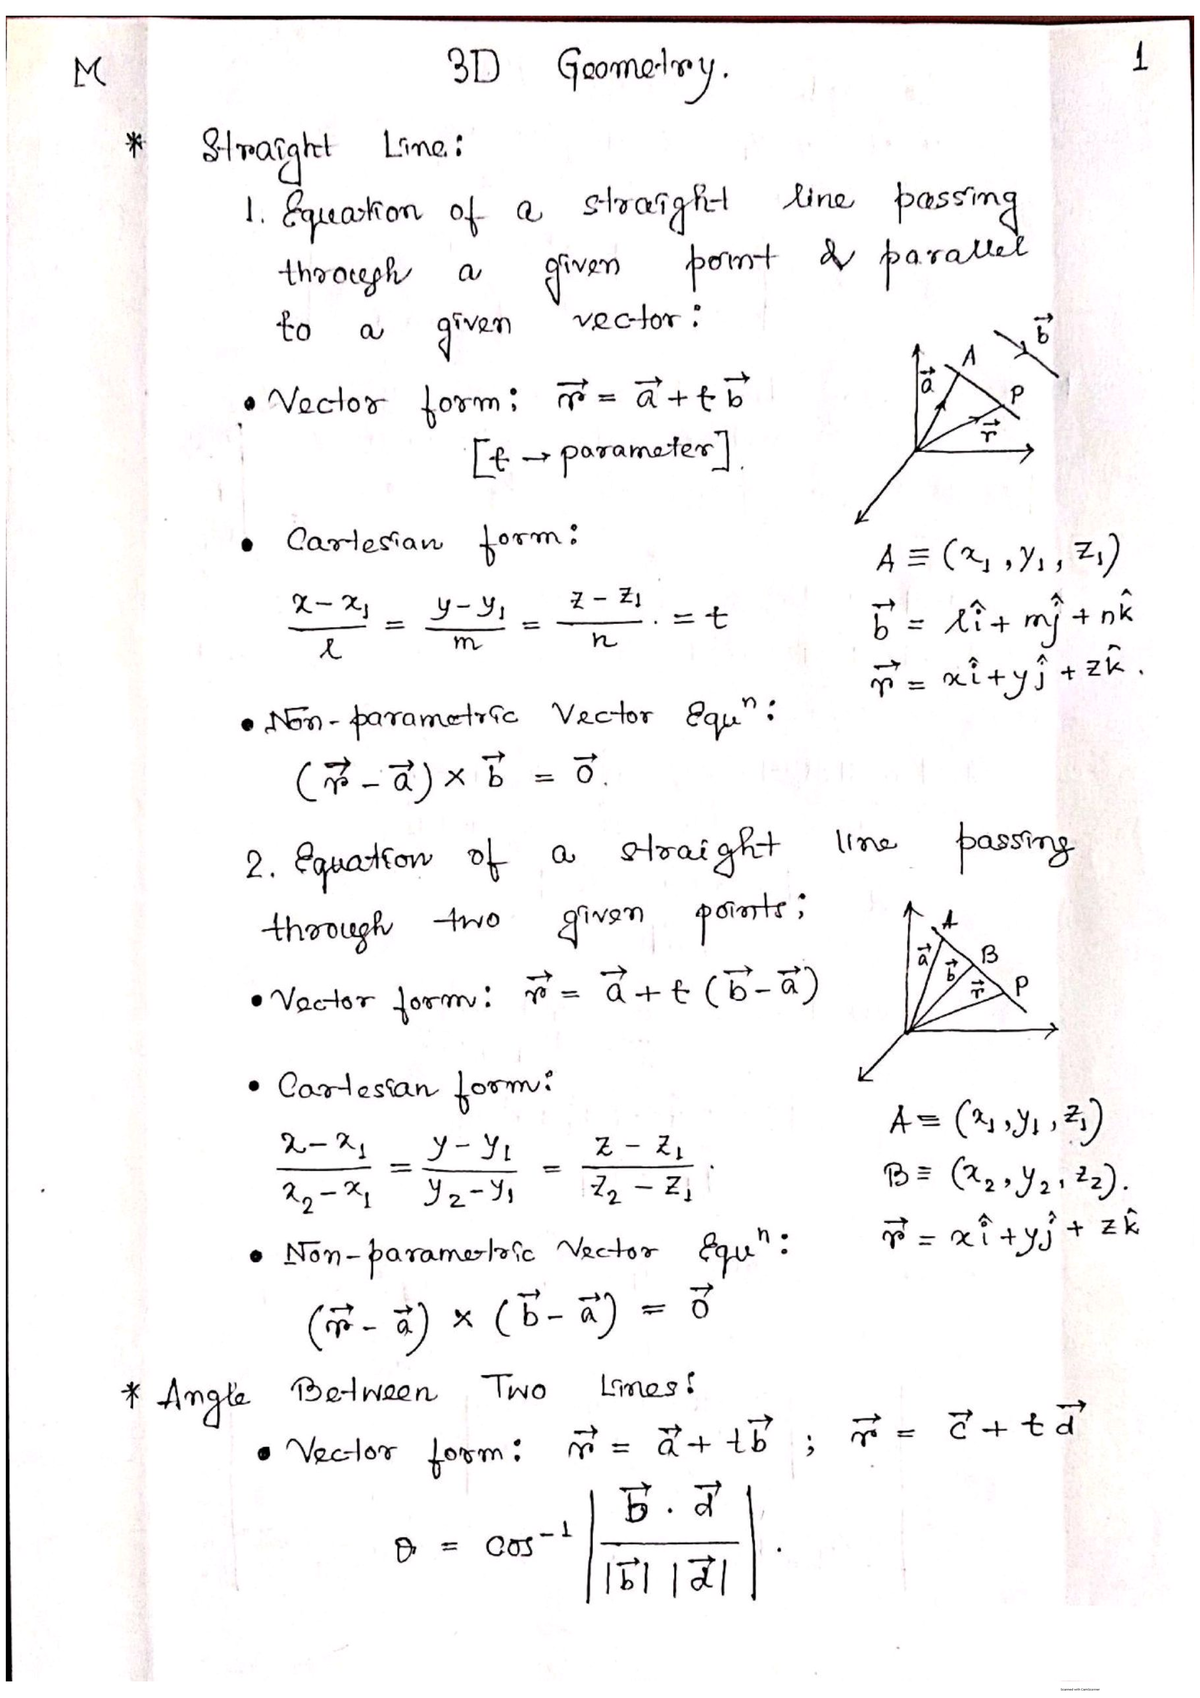 M 3D Geometry. 1
* Straight Line:
1. Equation of a straight line passing
through a given point & parallel
to a given vector:
• Vector form: r⃗ = a⃗ + t b⃗
[t → parameter].
a⃗ A P r⃗ b⃗
• Cartesian form:
(x - x₁)/l = (y - y₁)/m = (z - z₁)/n . = t
A ≡ (x₁, y₁, z₁)
b⃗ = lî + mĵ + nk̂
r⃗ = xî + yĵ + zk̂.
• Non-parametric Vector Equⁿ:
(r⃗ - a⃗) × b⃗ = 0⃗.
2. Equation of a straight line passing
through two given points:
• Vector form: r⃗ = a⃗ + t (b⃗ - a⃗)
a⃗ A b⃗ B r⃗ P
• Cartesian form:
(x - x₁)/(x₂ - x₁) = (y - y₁)/(y₂ - y₁) = (z - z₁)/(z₂ - z₁).
A ≡ (x₁, y₁, z₁)
B ≡ (x₂, y₂, z₂).
r⃗ = xî + yĵ + zk̂
• Non-parametric Vector Equⁿ:
(r⃗ - a⃗) × (b⃗ - a⃗) = 0⃗
* Angle Between Two Lines:
• Vector form: r⃗ = a⃗ + t b⃗ ; r⃗ = c⃗ + t d⃗
θ = cos⁻¹ |(b⃗ . d⃗)/(|b⃗| |d⃗|)|.
Scanned with CamScanner